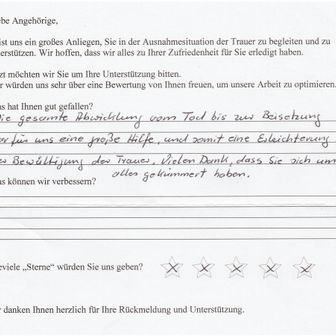 be Angehörige,
ist uns ein großes Anliegen, Sie in der Ausnahmesituation der Trauer zu begleiten und zu
erstützen. Wir hoffen, dass wir alles zu Ihrer Zufriedenheit für Sie erledigt haben.
zt möchten wir Sie um Ihre Unterstützung bitten.
r würden uns sehr über eine Bewertung von Ihnen freuen, um unsere Arbeit zu optimieren.
s hat Ihnen gut gefallen?
ie gesamte Abwicklung vom Tod bis zur Beisetzung
ar für uns eine große Hilfe, und somit eine Erleichterung
er Bewältigung der Trauer, Vielen Dank, dass Sie sich um
alles gekümmert haben.
s können wir verbessern?
eviele „Sterne“ würden Sie uns geben?
r danken Ihnen herzlich für Ihre Rückmeldung und Unterstützung.